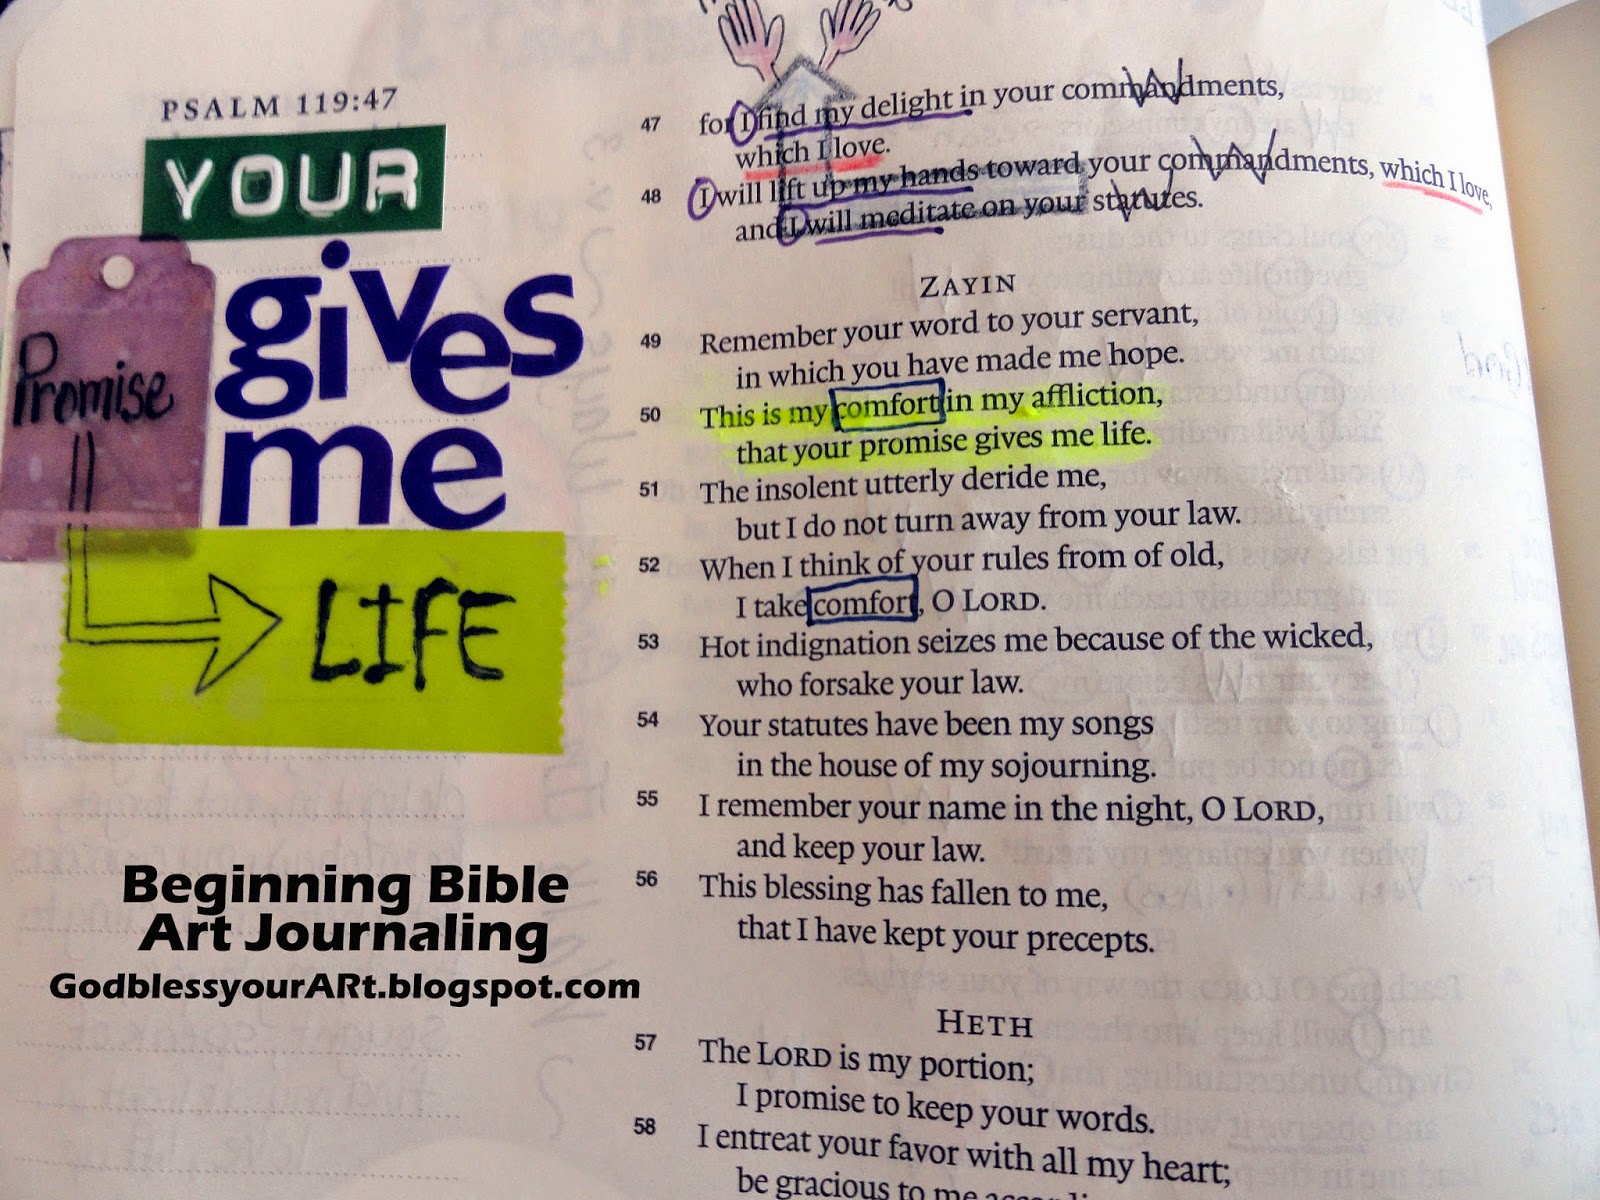 PSALM 119:47
YOUR
Promise
gives
me
LIFE
Beginning Bible
Art Journaling
GodblessyourARt.blogspot.com
47 for I find my delight in your commandments,
which I love.
48 I will lift up my hands toward your commandments, which I love,
and I will meditate on your statutes.
ZAYIN
49 Remember your word to your servant,
in which you have made me hope.
50 This is my comfort in my affliction,
that your promise gives me life.
51 The insolent utterly deride me,
but I do not turn away from your law.
52 When I think of your rules from of old,
I take comfort, O LORD.
53 Hot indignation seizes me because of the wicked,
who forsake your law.
54 Your statutes have been my songs
in the house of my sojourning.
55 I remember your name in the night, O LORD,
and keep your law.
56 This blessing has fallen to me,
that I have kept your precepts.
HETH
57 The LORD is my portion;
I promise to keep your words.
58 I entreat your favor with all my heart;
be gracious to me